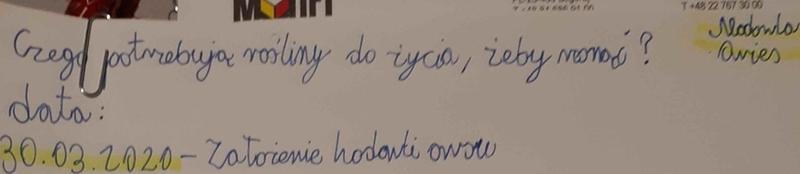 T +48 22 767 30 00
Czego potrzebują rośliny do życia, żeby rosnąć?
Hodowla
owies
data:
30.03.2020 - Założenie hodowli owsa